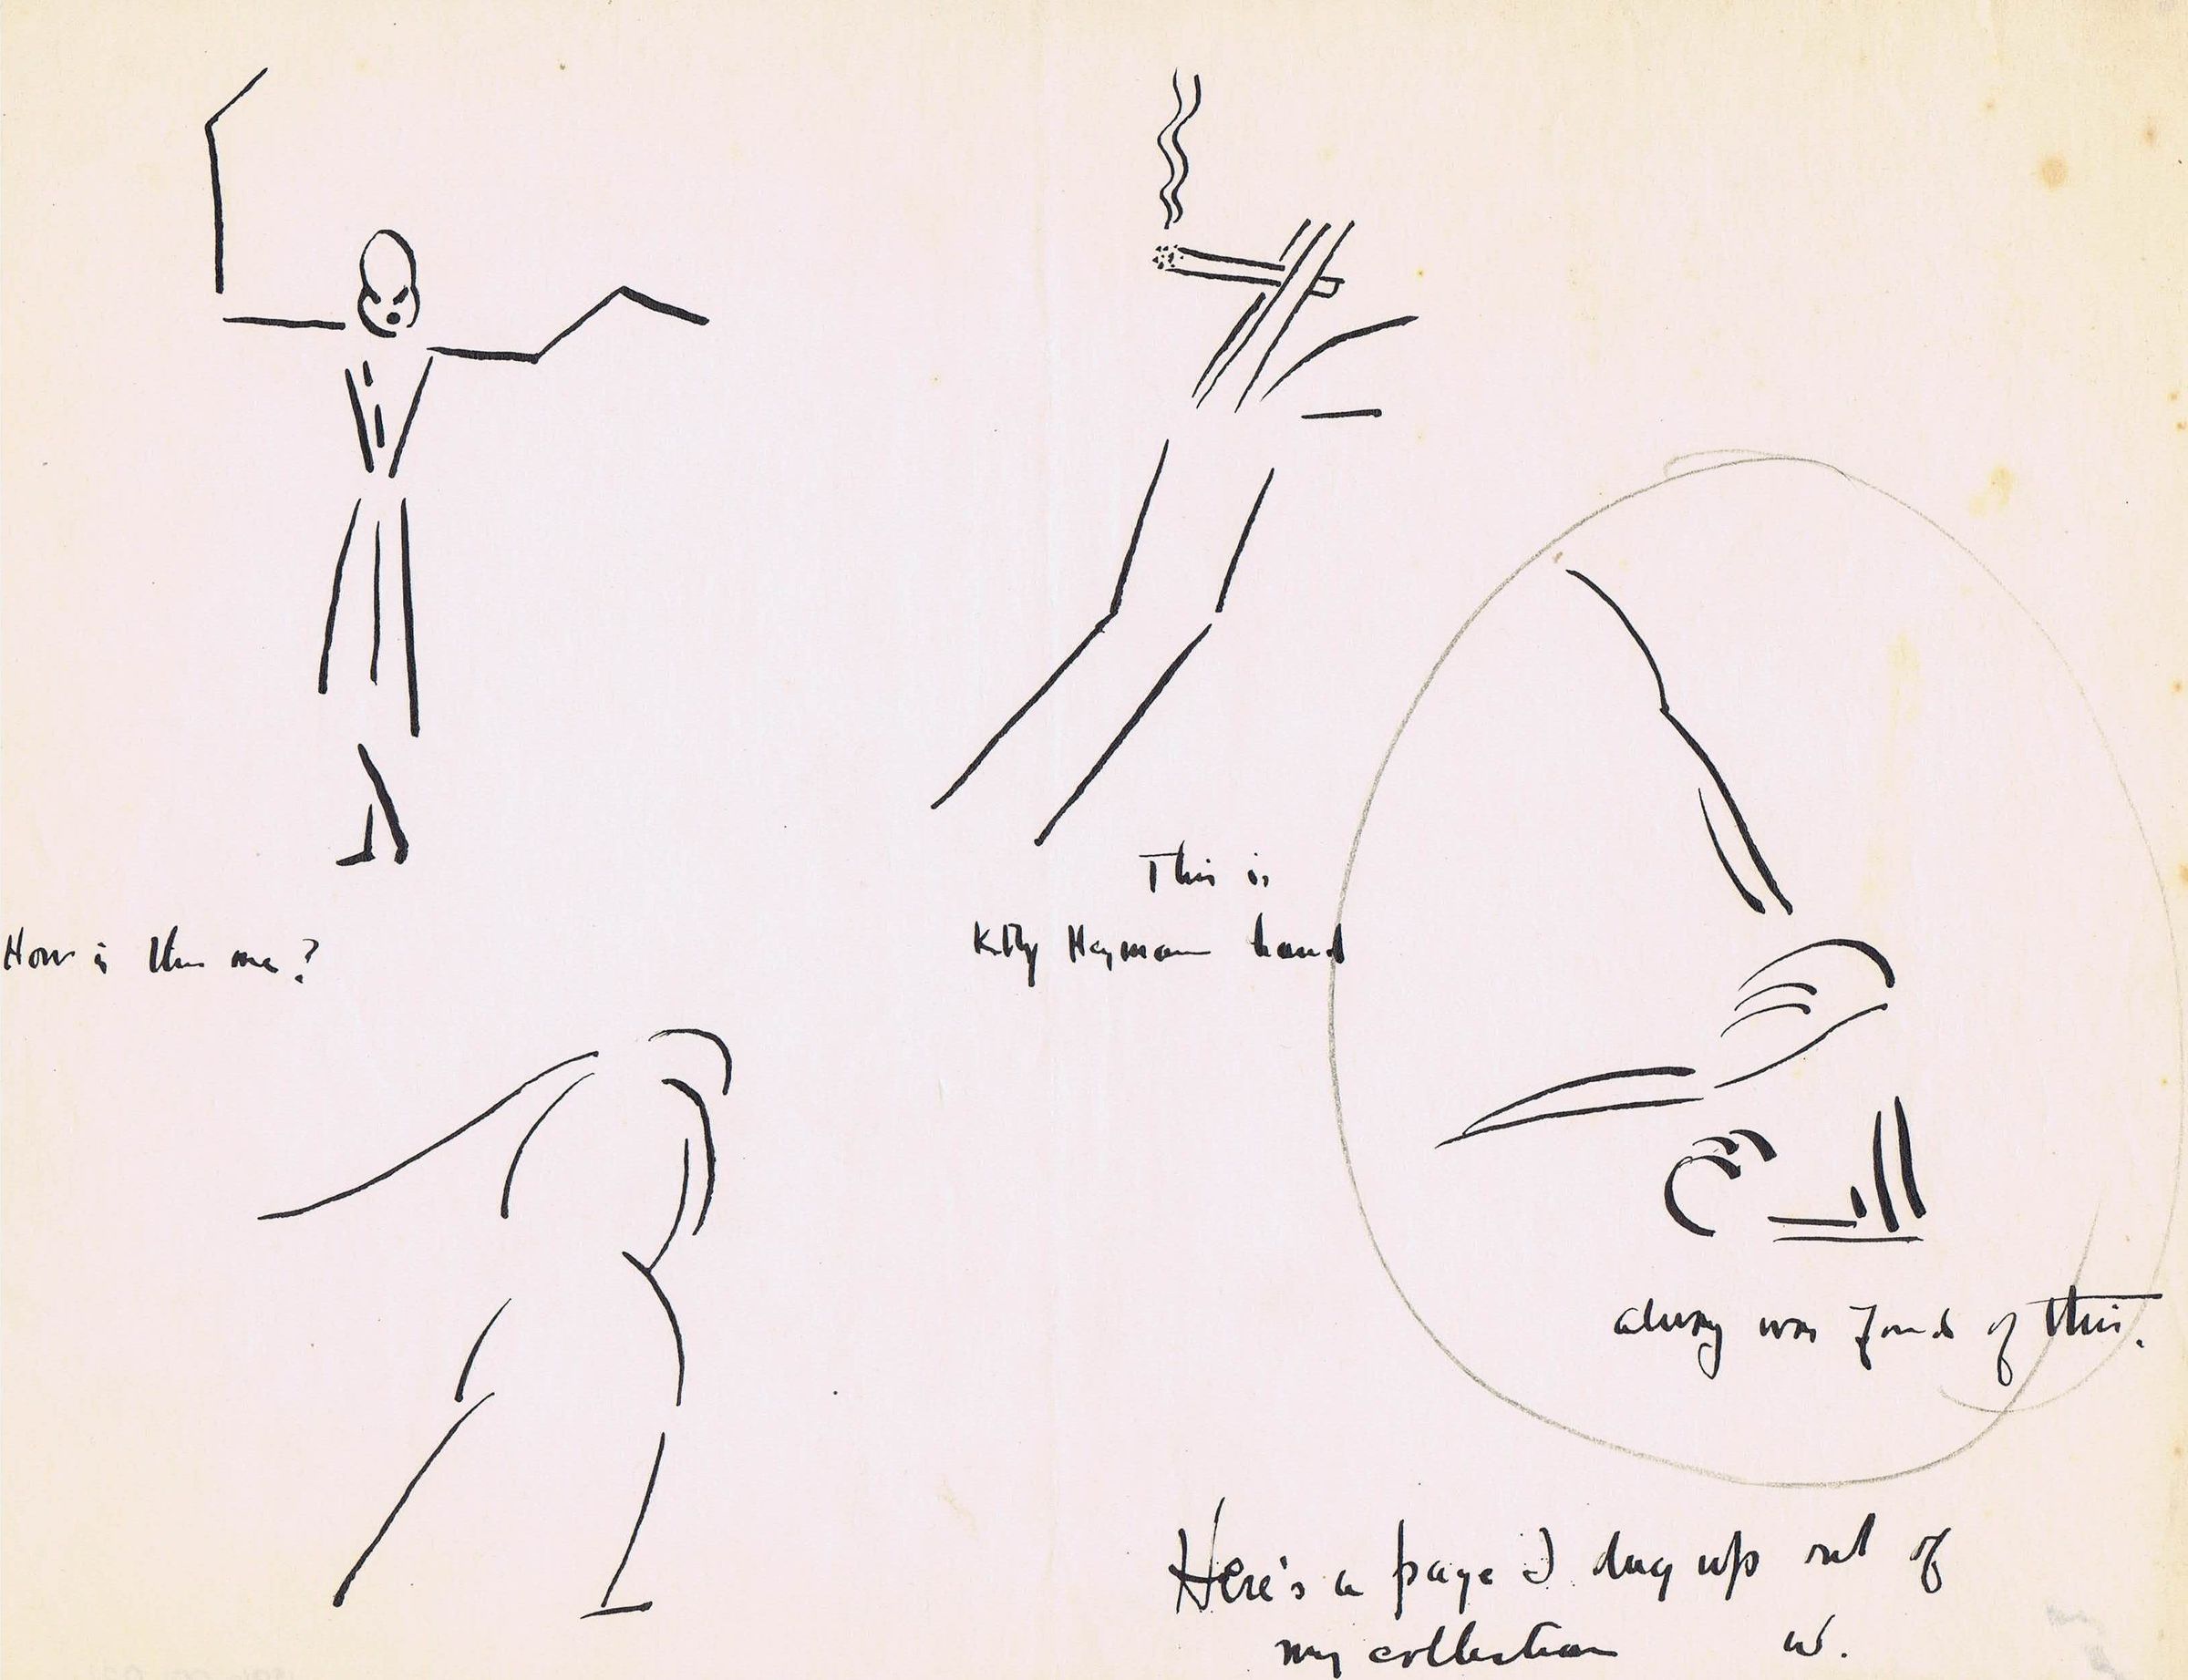 How is this one?
This is
Kitty Heyman hand
always was fond of this.
Here's a page I dug up out of
my collection w.